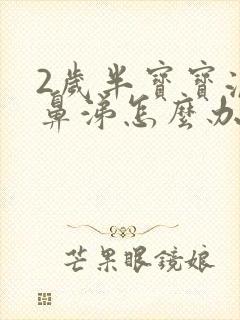 2歲半寶寶流
鼻涕怎麼办
芒果眼鏡娘